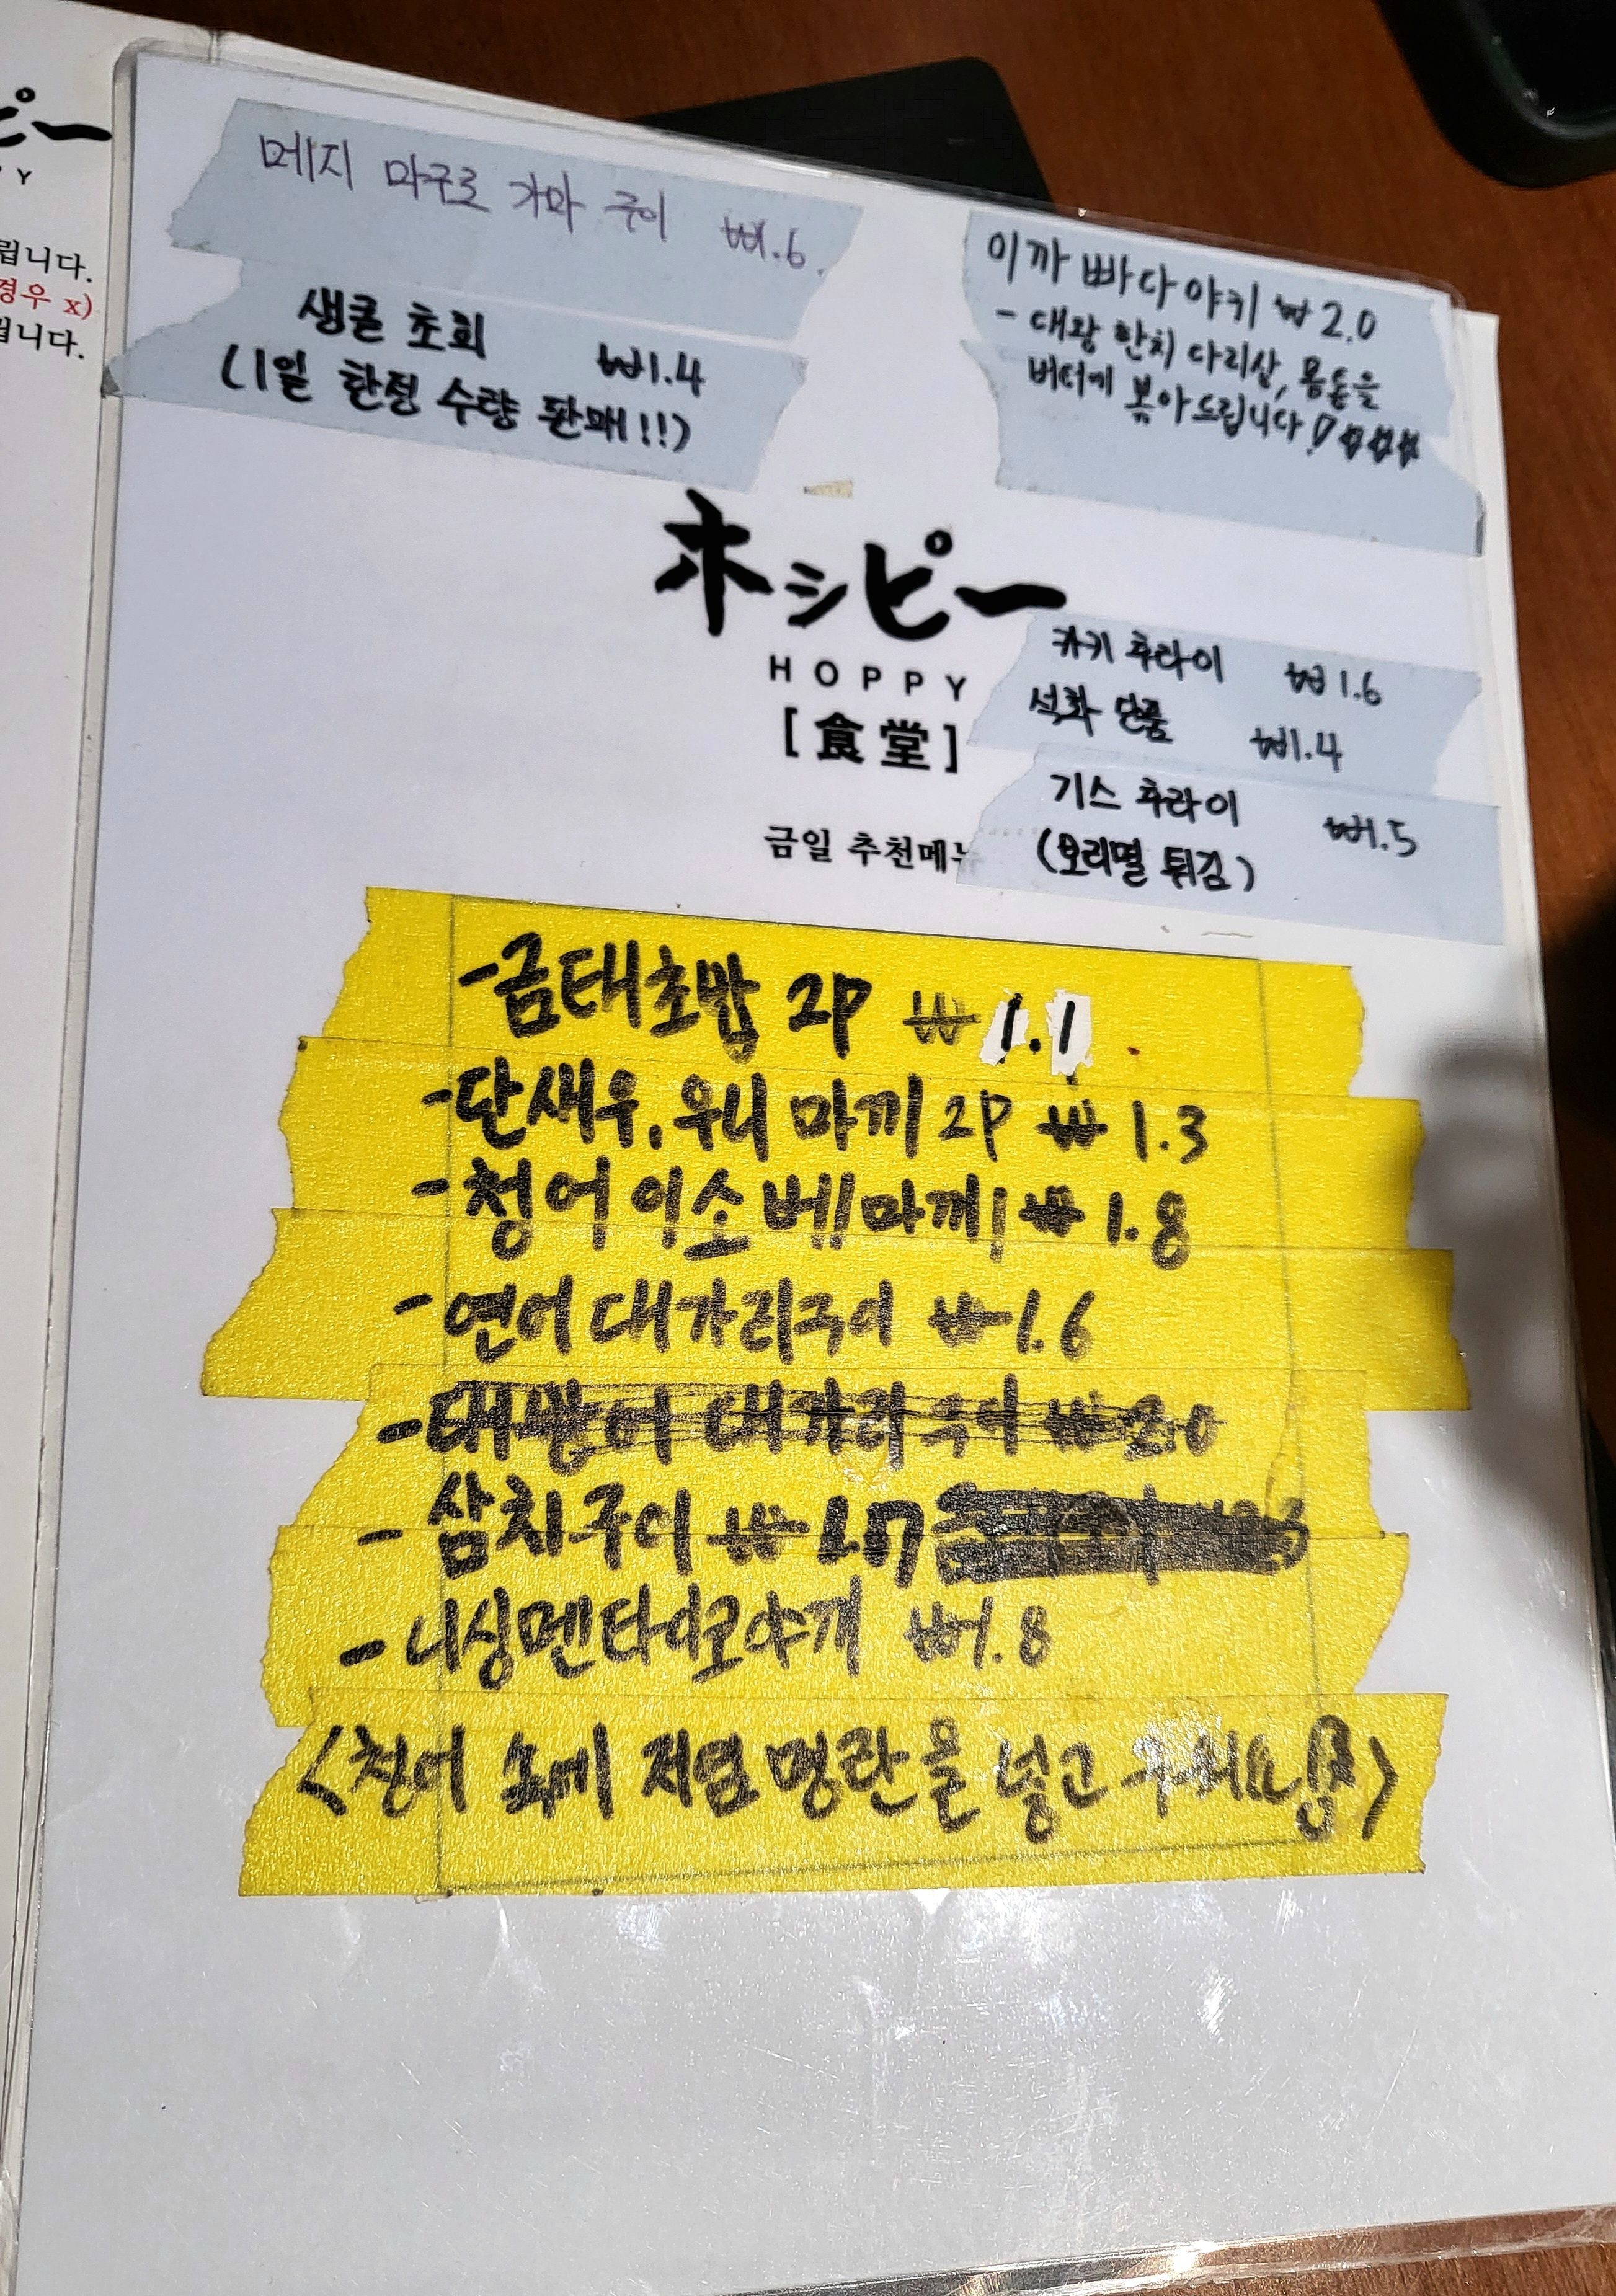 ピー
P Y
립니다.
경우 x)
립니다.
메지 마구로 가마 구이 ₩1.6.
생굴 초회 ₩1.4
(1일 한정 수량 판매!!)
이까 빠다 야키 ₩2.0
- 대왕 한치 다리살, 몸통을
버터에 볶아드립니다!
ホッピー
HOPPY
[食堂]
카키 후라이 ₩1.6
석화 단품 ₩1.4
기스 후라이 ₩1.5
(보리멸 튀김)
금일 추천메뉴
-금태초밥 2P ₩1.1
-단새우, 우니 마끼 2P ₩1.3
-청어 이소베마끼 ₩1.8
-연어 대가리구이 ₩1.6
-대광어 대가리구이 ₩2.0
-삼치구이 ₩1.7
-니싱멘타이코야끼 ₩1.8
<청어 속에 저염 명란을 넣고 구워요>